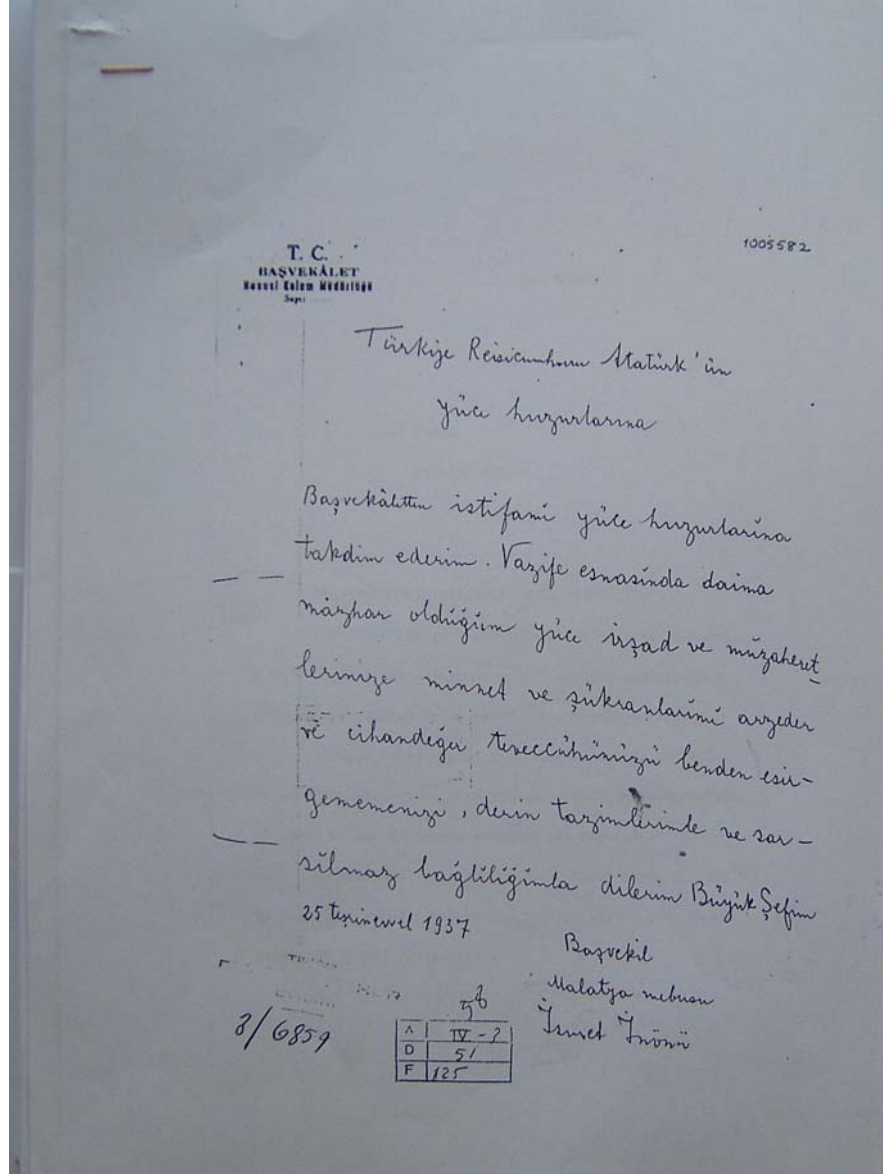 1005582
T. C.
BAŞVEKÂLET
Hususî Kalem Müdürlüğü
Sayı:
Türkiye Reisicumhuru Atatürk'ün
yüce huzurlarına
Başvekâletten istifamı yüce huzurlarına
takdim ederim. Vazife esnasında daima
mazhar olduğum yüce irşad ve müzaheret
lerinize minnet ve şükranlarımı arzeder
ve cihandeğer teveccühünüzü benden esir-
gememenizi, derin tazimlerimle ve sar-
sılmaz bağlılığımla dilerim Büyük Şefim
25 teşrinevvel 1937
Başvekil
Malatya mebusu
İsmet İnönü
3/6859
58
A IV-3
D 51
F 125